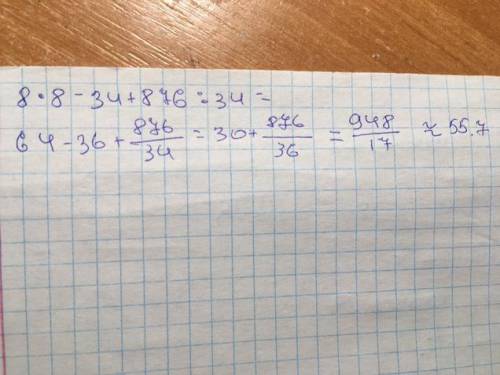 8·8-34+876:34=
64-36+876/34=30+876/36=948/17≈55.7